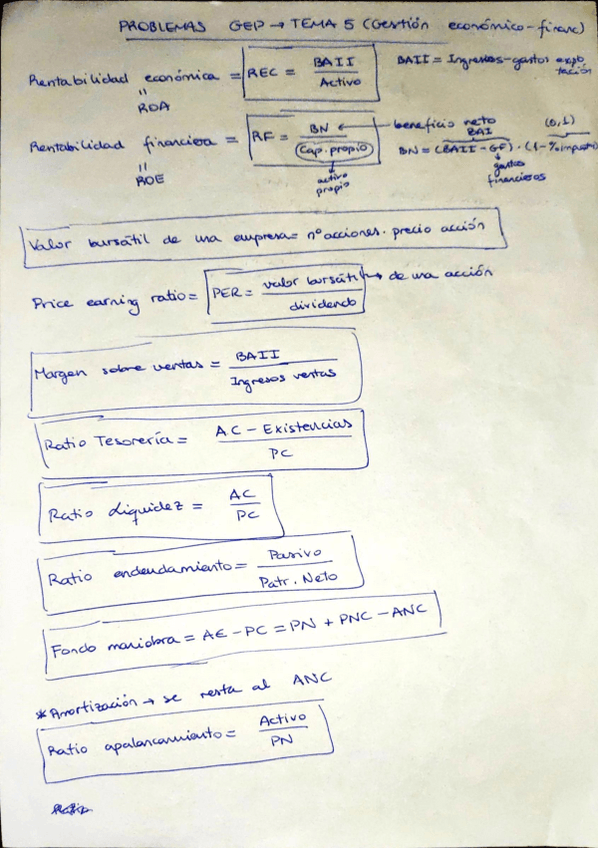 PROBLEMAS GEP → TEMA 5 (Gestión económico-financ)
Rentabilidad económica = REC = BAII / Activo
BAII = Ingresos-gastos explotación
"
ROA
Rentabilidad financiera = RF = BN / Cap. propio
← beneficio neto
BAI
(0,1)
BN = (BAII - GF) · (1-% impuestos)
"
ROE
activo
propio
gastos
financieros
Valor bursátil de una empresa = nº acciones · precio acción
Price earning ratio = PER = valor bursátil / dividendo
→ de una acción
Margen sobre ventas = BAII / Ingresos ventas
Ratio Tesorería = AC - Existencias / PC
Ratio Liquidez = AC / PC
Ratio endeudamiento = Pasivo / Patr. Neto
Fondo maniobra = AC - PC = PN + PNC - ANC
*Amortización → se resta al ANC
Ratio apalancamiento = Activo / PN